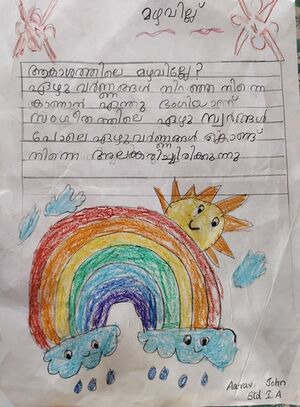 മഴവില്ല്
ആകാശത്തിലെ മഴവില്ലേ?
ഏഴു വർണ്ണങ്ങൾ നിറഞ്ഞ നിന്നെ
കാണാൻ എന്തു ഭംഗിയാണ്
സംഗീതത്തിലെ ഏഴു സ്വരങ്ങൾ
പോലെ ഏഴു വർണ്ണങ്ങൾ കൊണ്ട്
നിന്നെ അലങ്കരിച്ചിരിക്കുന്നു
Aarav John
Std I A